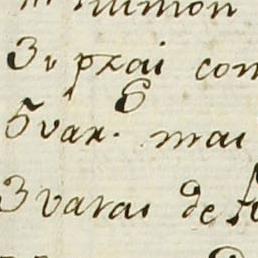 3v prai com
6
5 var. mai
3 varai de